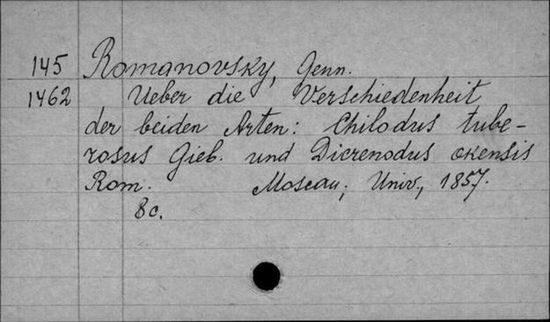 145 Romanovsky, Genn.
1462 Ueber die Verschiedenheit
der beiden Arten: Chilodus tube-
rosus Gieb. und Dicrenodus okensis
Rom. Moscau, Univ., 1857.
8c.